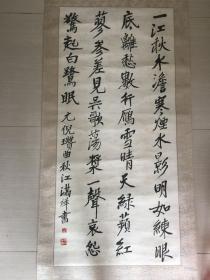 一江秋水澹寒煙水影明如練眼
底離愁數行鴈雪晴天綠蘋紅
蓼參差見吳歌蕩槳一聲哀怨
驚起白鷺眠 元倪瓚曲秋江滿祥書